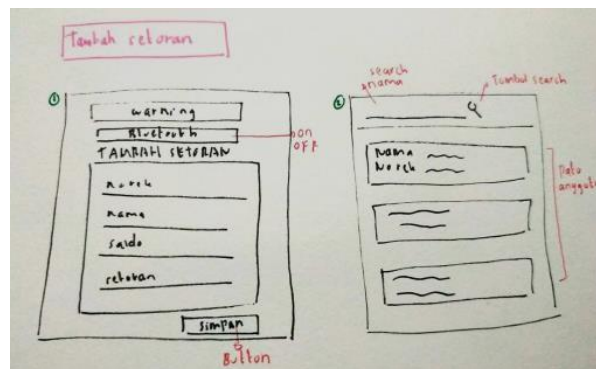 Tambah setoran
①
warning
Bluetooth
on
OFF
TAMBAH SETORAN
norek
nama
saldo
setoran
simpan
Button
②
search
nama
Tombol search
Nama
Norek
Data
anggota